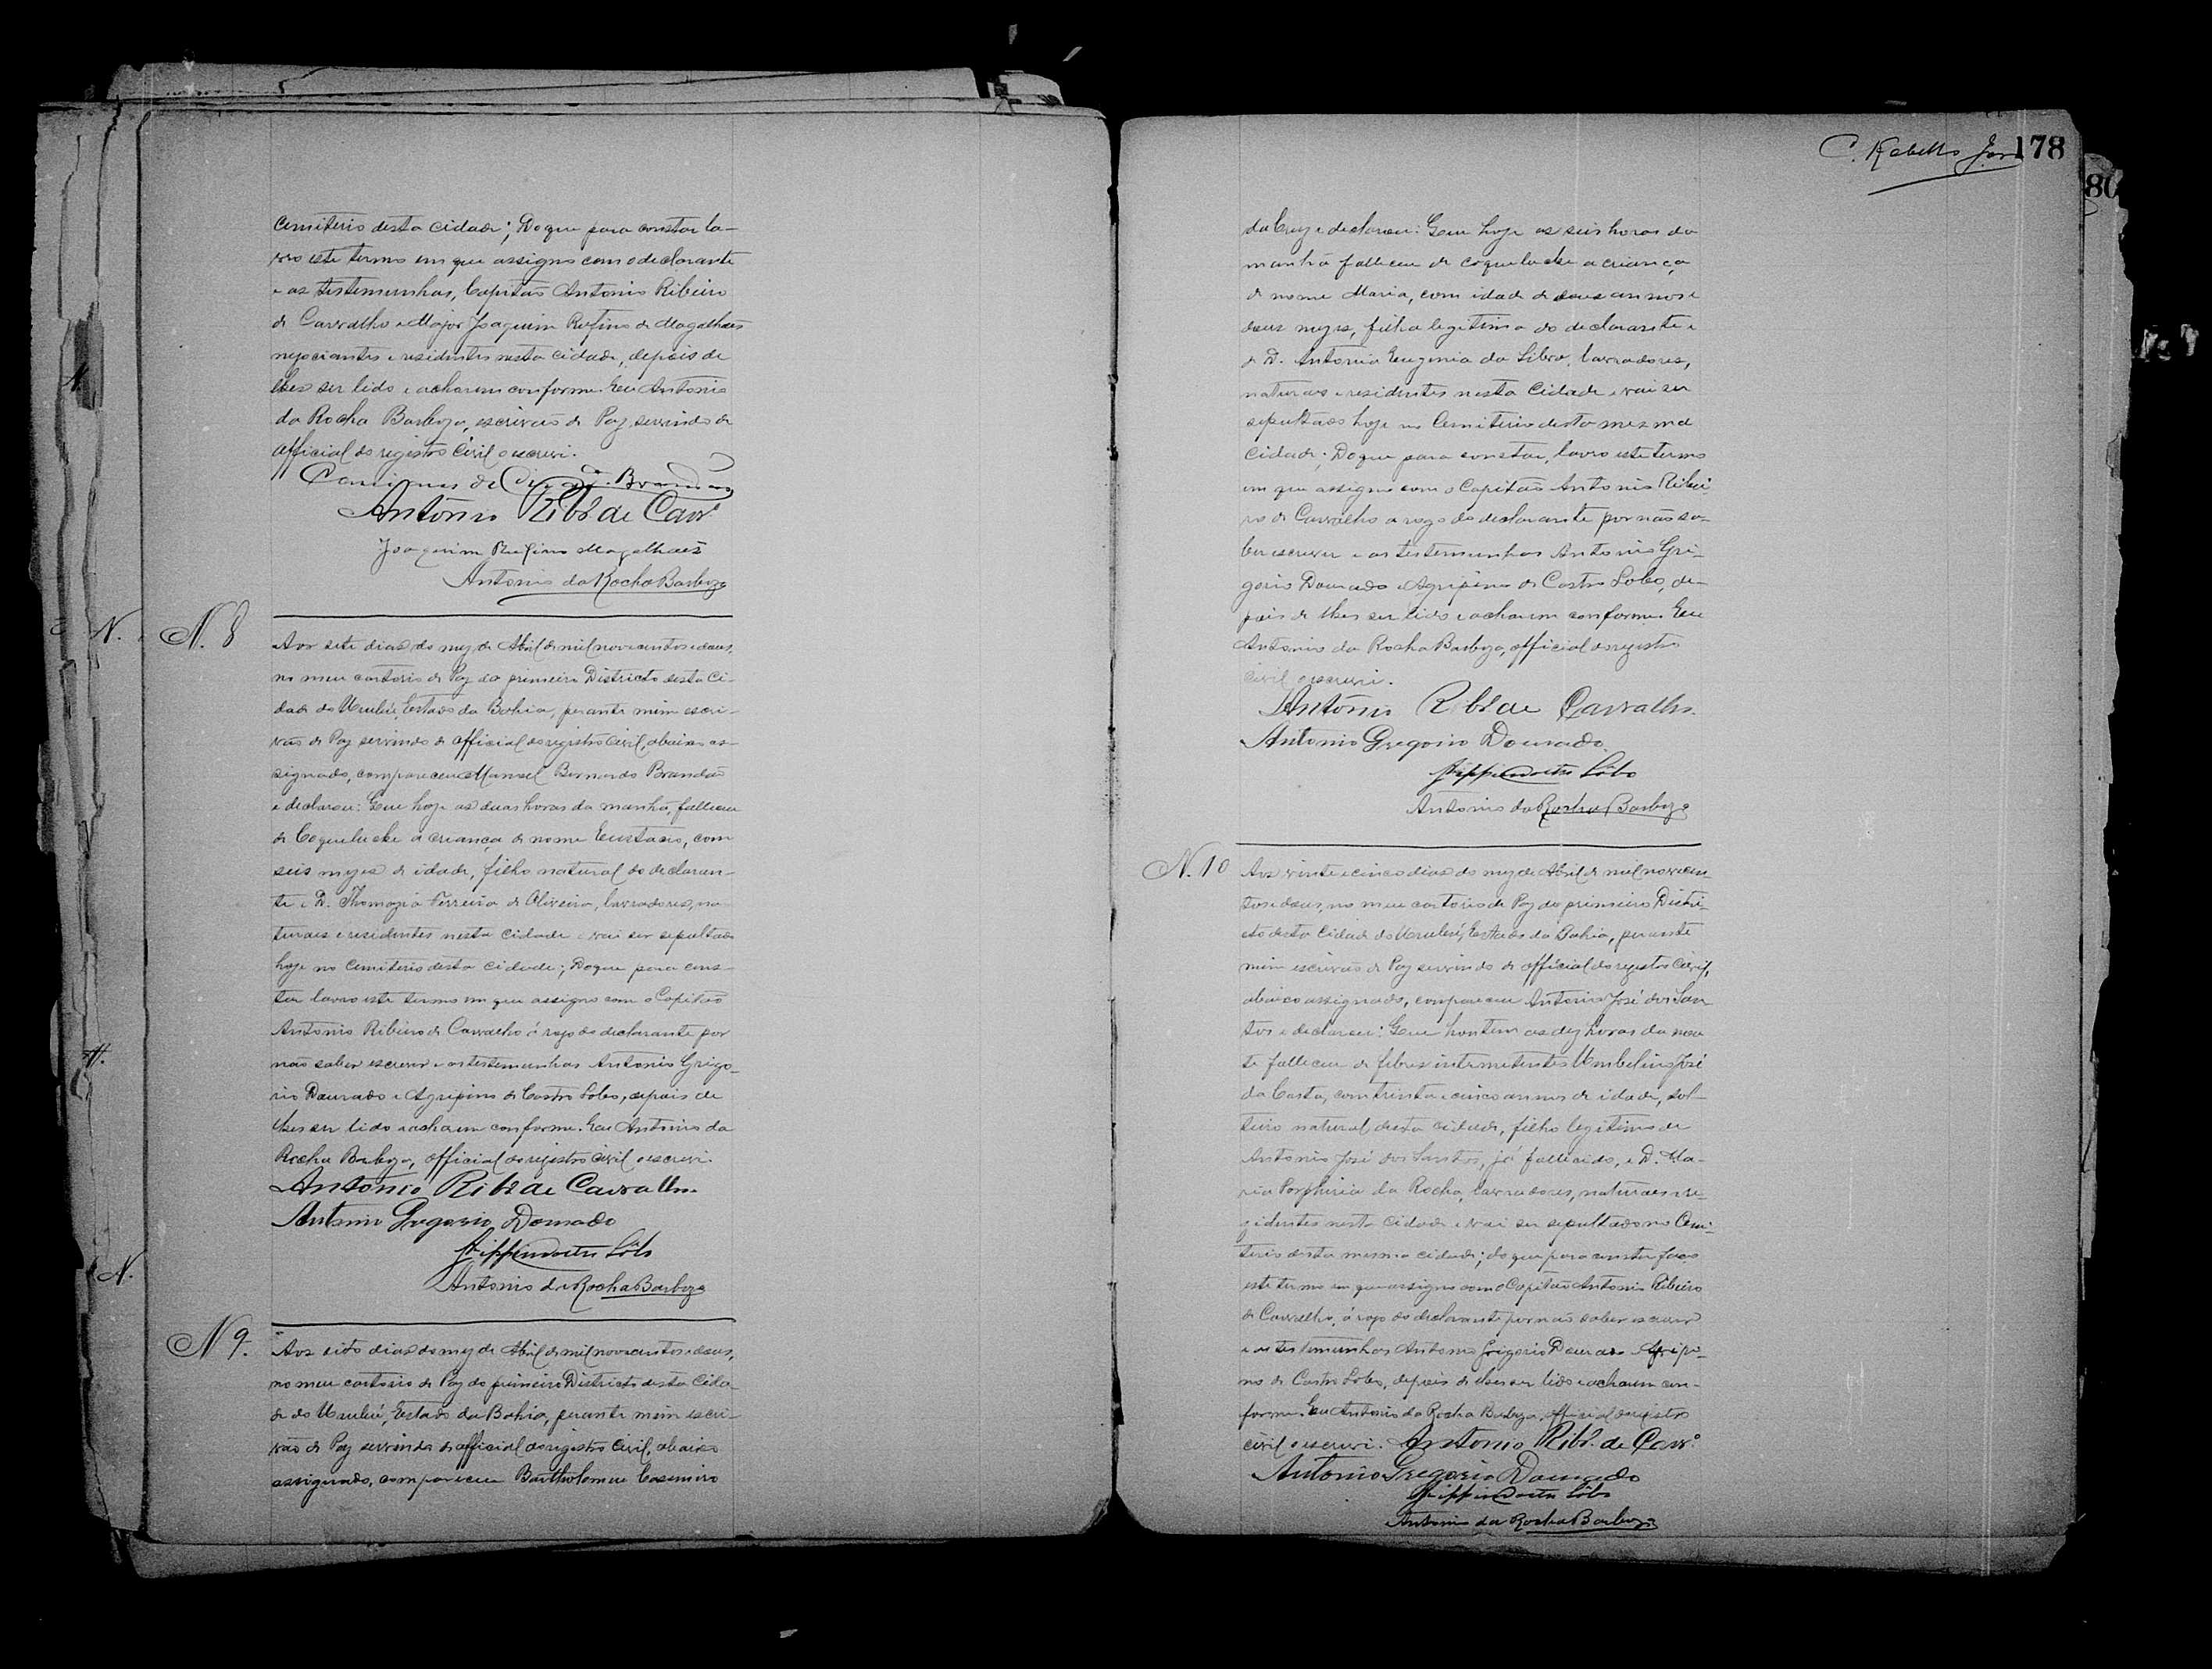 Cemiterio desta cidade; Do que para constar la-
vro este termo em que assigno com o declarante
e as testemunhas, Capitão Antonio Ribeiro
de Carvalho e Major Joaquim Rufino de Magalhães
negociantes e residentes nesta cidade, depois de
lhes ser lido e acharem conforme. Eu Antonio
da Rocha Barboza, escrivão de Paz, servindo de
official do registro Civil o escrevi.
Antônio Ribr. de Carvº
Joaquim Rufino Magalhães
Antonio da Rocha Barboza
N. 8
Aos sete dias do mez de Abril de mil novecentos e dous,
no meu cartorio de Paz do primeiro Districto desta Ci-
dade do Urubú, Estado da Bahia, perante mim escri-
vão de Paz servindo de official do registro Civil, abaixo as-
signado, compareceu Manoel Bernardo Brandão
e declarou: Que hoje as duas horas da manhã, falleceu
de Coqueluche a criança de nome Eustacio, com
seis mezes de idade, filho natural do declaran-
te e D. Thomazia Ferreira de Oliveira, lavradores, na-
turaes e residentes nesta cidade e vai ser sepultado
hoje no Cemiterio desta cidade; Do que para cons-
tar lavro este termo em que assigno com o Capitão
Antonio Ribeiro de Carvalho á rogo do declarante por
não saber escrever e as testemunhas Antonio Grigo-
rio Dourado e Agripino de Castro Lobo, depois de
lhes ser lido e acharem conforme. Eu Antonio da
Rocha Barboza, official do registro civil o escrevi.
Antonio Ribr de Carvalho.
Antonio Gregorio Dourado
Lôbo
Antonio da Rocha Barboza
N 9.
Aos oito dias do mez de Abril de mil novecentos e dous,
no meu cartorio de Paz do primeiro Districto desta Cida-
de do Urubú, Estado da Bahia, perante mim escri-
vão de Paz servindo de official do registro Civil, abaixo
assignado, compareceu Bartholomeu Casemiro
178
da Cruz e declarou: Que hoje as seis horas da
manhã falleceu de coqueluche a criança
de nome Maria, com idade de dous annos e
dous mezes, filha legitima do declarante e
e D. Antonia Eugenia da Silva, lavradores,
naturaes e residentes nesta Cidade e vai ser
sepultado hoje no Cemiterio desta mesma
Cidade; Do que para constar, lavro este termo
em que assigno com o Capitão Antonio Ribei
ro de Carvalho a rogo do declarante por não sa-
ber escrever e as testemunhas Antonio Gri-
gorio Dourado e Agripino de Castro Lobo, de-
pois de lhes ser lido e acharem conforme. Eu
Antonio da Rocha Barboza, official do registro
civil o escrevi.
Antônio Ribr de Carvalho.
Antonio Gregorio Dourado.
Lôbo
Antonio da Rocha Barboza
N. 10
Aos vinte e cinco dias do mez de Abril de mil novecen
tos e dous, no meu cartorio de Paz do primeiro Distri-
cto desta Cidade do Urubú, Estado da Bahia, perante
mim escrivão de Paz servindo de official do registro Civil,
abaixo assignado, compareceu Antonio José dos San
tos e declarou: Que hontem as dez horas da noi
te falleceu de febres intermitentes Umbelino José
da Costa, com trinta e cinco annos de idade, sol-
teiro natural desta cidade, filho legitimo de
Antonio José dos Santos, já fallecido, e D. Ma-
ria Porphiria da Rocha, lavradores, naturaes e re-
zidentes nesta cidade e vai ser sepultado no Cemi-
terio desta mesma cidade; do que para constar faço
este termo em que assigno com o Capitão Antonio Ribeiro
de Carvalho, á rogo do declarante por não saber escrever
e as testemunhas Antonio Grigorio Dourado e Agripi-
no de Castro Lobo, depois de lhes ser lido e acharem con-
forme. Eu Antonio da Rocha Barboza, official do registro
civil o escrevi. Antonio Ribr. de Carvº
Antonio Gregorio Dourado
Lôbo
Antonio da Rocha Barboza